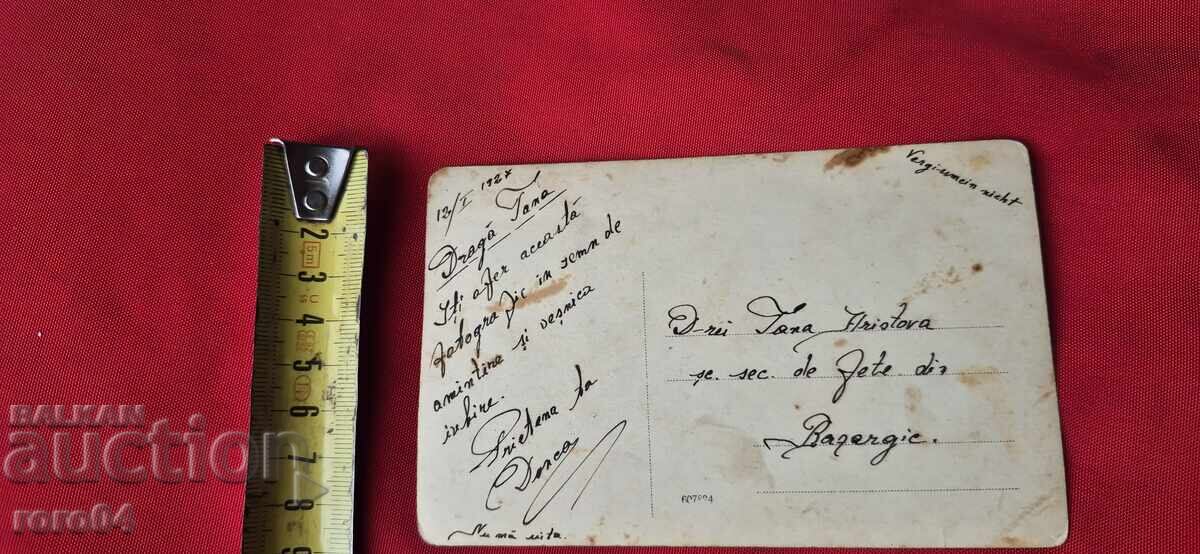 12/I 1927
Dragă Tana
Iți ofer această
fotografic in semn de
amintire și veșnica
iubire.
Prietena ta
Donca
Nu mă uita.
Vergissmein nicht
D-rei Tana Hristova
șc. sec. de fete din
Bazargic.
607994
2
5m
3
4
5
6
7
8
9
BALKAN
auction
roro64